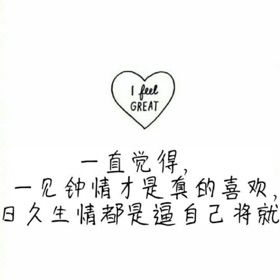 I feel
GREAT
一直觉得,
一见钟情才是真的喜欢,
日久生情都是逼自己将就